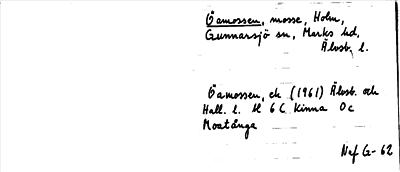 Öamossen, mosse, Holm,
Gunnarsjö sn, Marks hd,
Älvsb. l.
Öamossen, ek (1961) Älvsb. och
Hall. l. bl 6 C Kinna 0 c
Moatånga
Naf G-62